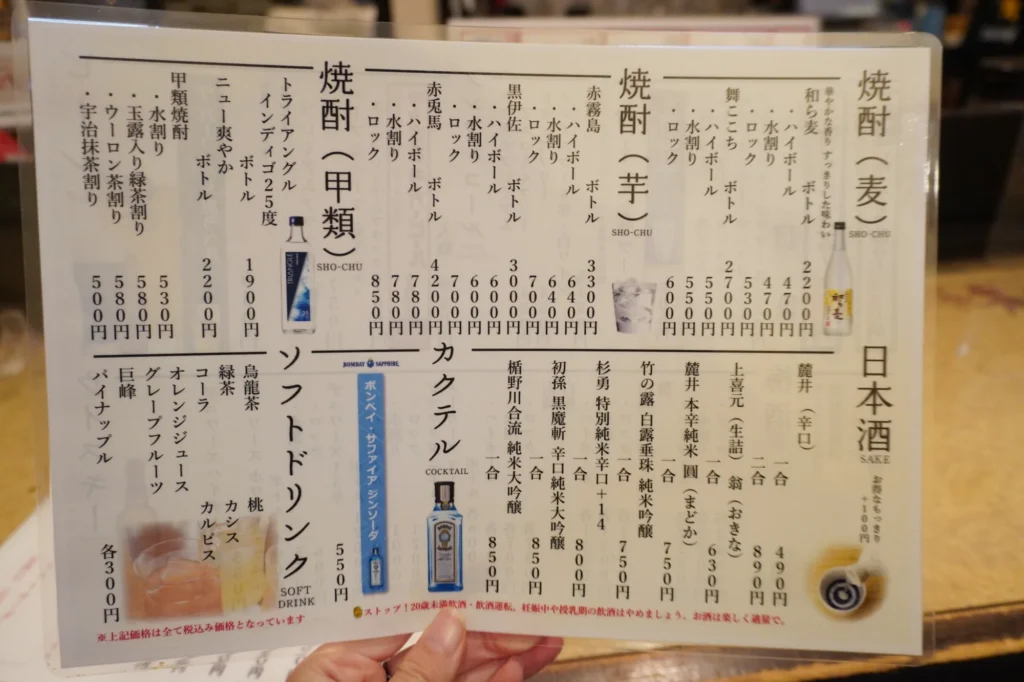 焼酎（麦）
SHO-CHU
華やかな香り すっきりした味わい
和ら麦 ボトル 2200円
・ハイボール 470円
・水割り 470円
・ロック 530円
舞ここち ボトル 2700円
・ハイボール 550円
・水割り 550円
・ロック 600円
焼酎（芋）
SHO-CHU
赤霧島 ボトル 3300円
・ハイボール 640円
・水割り 640円
・ロック 700円
黒伊佐 ボトル 3000円
・ハイボール 600円
・水割り 600円
・ロック 700円
赤兎馬 ボトル 4200円
・ハイボール 780円
・水割り 780円
・ロック 850円
焼酎（甲類）
SHO-CHU
トライアングル
インディゴ25度
ボトル 1900円
ニュー爽やか
ボトル 2200円
甲類焼酎
・水割り 530円
・玉露入り緑茶割り 580円
・ウーロン茶割り 580円
・宇治抹茶割り 500円
日本酒
SAKE
お得なもっきり
+100円
麓井（辛口）
一合 490円
二合 890円
上喜元（生詰）翁（おきな）
一合 630円
麓井 本辛純米 圓（まどか）
一合 750円
竹の露 白露垂珠 純米吟醸
一合 750円
杉勇 特別純米辛口+14
一合 800円
初孫 黒魔斬 辛口純米大吟醸
一合 850円
楯野川合流 純米大吟醸
一合 850円
カクテル
COCKTAIL
BOMBAY SAPPHIRE
ボンベイ・サファイア ジンソーダ
550円
ソフトドリンク
SOFT
DRINK
烏龍茶
緑茶
コーラ
オレンジジュース
グレープフルーツ
巨峰
パイナップル
桃
カシス
カルピス
各300円
ストップ！20歳未満飲酒・飲酒運転。妊娠中や授乳期の飲酒はやめましょう。お酒は楽しく適量で。
※上記価格は全て税込み価格となっています